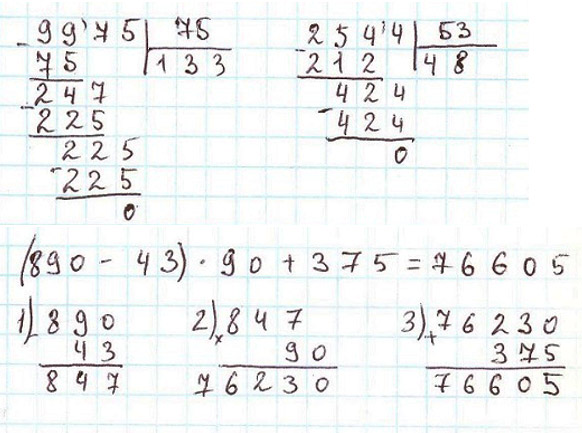 99'75 | 75
- 75 | 133
247
- 225
225
- 225
0
254'4 | 53
- 212 | 48
424
- 424
0
(890 - 43) · 90 + 375 = 76605
1) - 890
43
847
2) × 847
90
76230
3) + 76230
375
76605